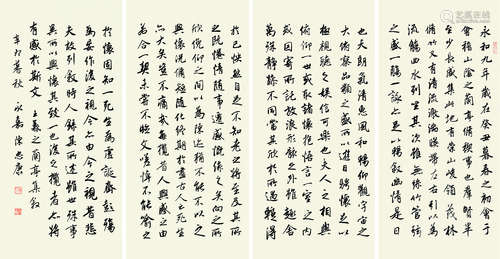 永和九年歲在癸丑暮春之初會于
會稽山陰之蘭亭脩禊事也群賢畢
至少長咸集此地有崇山峻領茂林
脩竹又有清流激湍暎帶左右引以為
流觴曲水列坐其次雖無絲竹管弦
之盛一觴一詠亦足以暢敘幽情是日
也天朗氣清惠風和暢仰觀宇宙之
大俯察品類之盛所以遊目騁懷足以
極視聽之娛信可樂也夫人之相與
俯仰一世或取諸懷抱悟言一室之內
或因寄所託放浪形骸之外雖趣舍
萬殊靜躁不同當其欣於所遇輙得
於己怏然自足不知老之將至及其所
之既惓情隨事遷感慨係之矣向之所
欣俛仰之間以為陳迹猶不能不以之
興懷況脩短隨化終期於盡古人云死生
亦大矣豈不痛哉每攬昔人興感之由
若合一契未嘗不臨文嗟悼不能喻之
於懷固知一死生為虛誕齊彭殤
為妄作後之視今亦由今之視昔悲
夫故列敘時人錄其所述雖世殊事
異所以興懷其致一也後之攬者亦將
有感於斯文 王羲之蘭亭集敘
辛卯暮秋 永嘉陳忠康